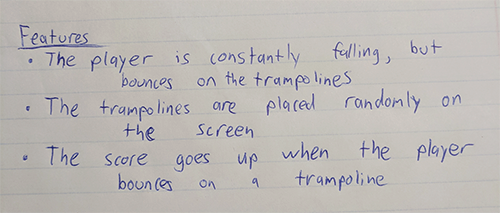 Features
• The player is constantly falling, but
bounces on the trampolines
• The trampolines are placed randomly on
the screen
• The score goes up when the player
bounces on a trampoline